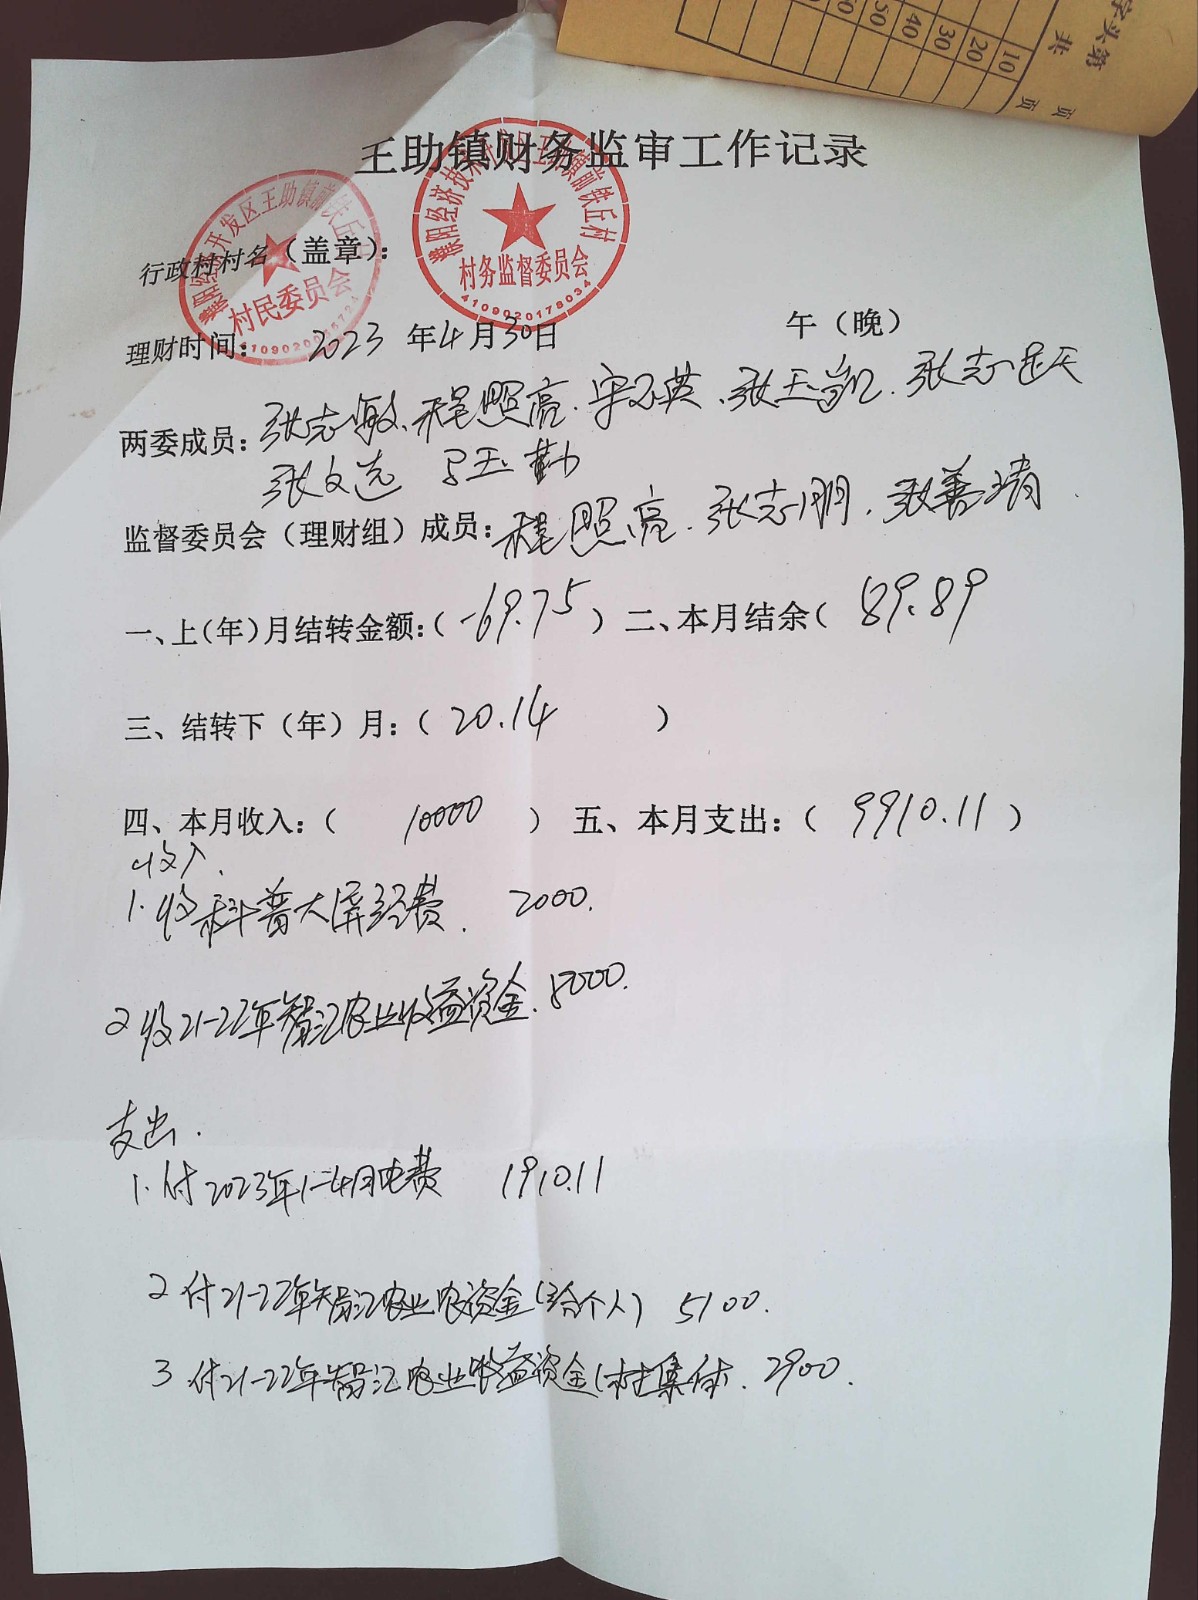 字头第
共 页 页
10
20
30
40
50
王助镇财务监审工作记录
濮阳经济技术开发区王助镇前铁丘村
村务监督委员会
4109020178034
村民委员会
行政村村名(盖章):
理财时间: 2023 年4月30日 午(晚)
两委成员: 张志敏、程照亮、张玉岩、张志
张文选 马玉勤
监督委员会(理财组)成员: 程照亮、张志朋、张善靖
一、上(年)月结转金额:( -69.75 ) 二、本月结余( 89.89
三、结转下(年)月:( 20.14 )
四、本月收入:( 10000 ) 五、本月支出:( 9910.11 )
收入、
1.收科普大屏经费. 2000.
2 收21-22年智汇农业收益资金. 8000.
支出.
1.付2023年1-4月电费 1910.11
2 付21-22年智汇农业资金(给个人) 5100.
3 付21-22年智汇农业收益资金(村集体. 2900.